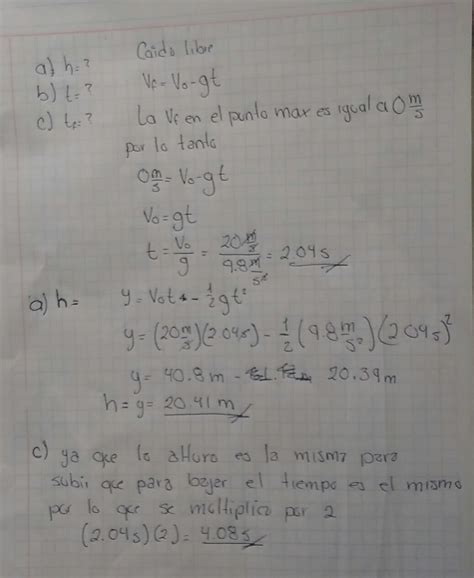 Caida libre
a) h=?
Vf = Vo - gt
b) t=?
c) tt=?
La Vf en el punto max es igual a 0 m/s
por lo tanto
0 m/s = Vo - gt
Vo = gt
t = Vo/g = 20 m/s / 9.8 m/s² = 2.04s
a) h= y = Vot - 1/2 gt²
y = (20 m/s)(2.04s) - 1/2 (9.8 m/s²)(2.04s)²
y = 40.8 m - 20.39m
h = y = 20.41 m
c) ya que la altura es la misma para
subir que para bajar el tiempo es el mismo
por lo que se multiplica por 2
(2.04s)(2) = 4.08s